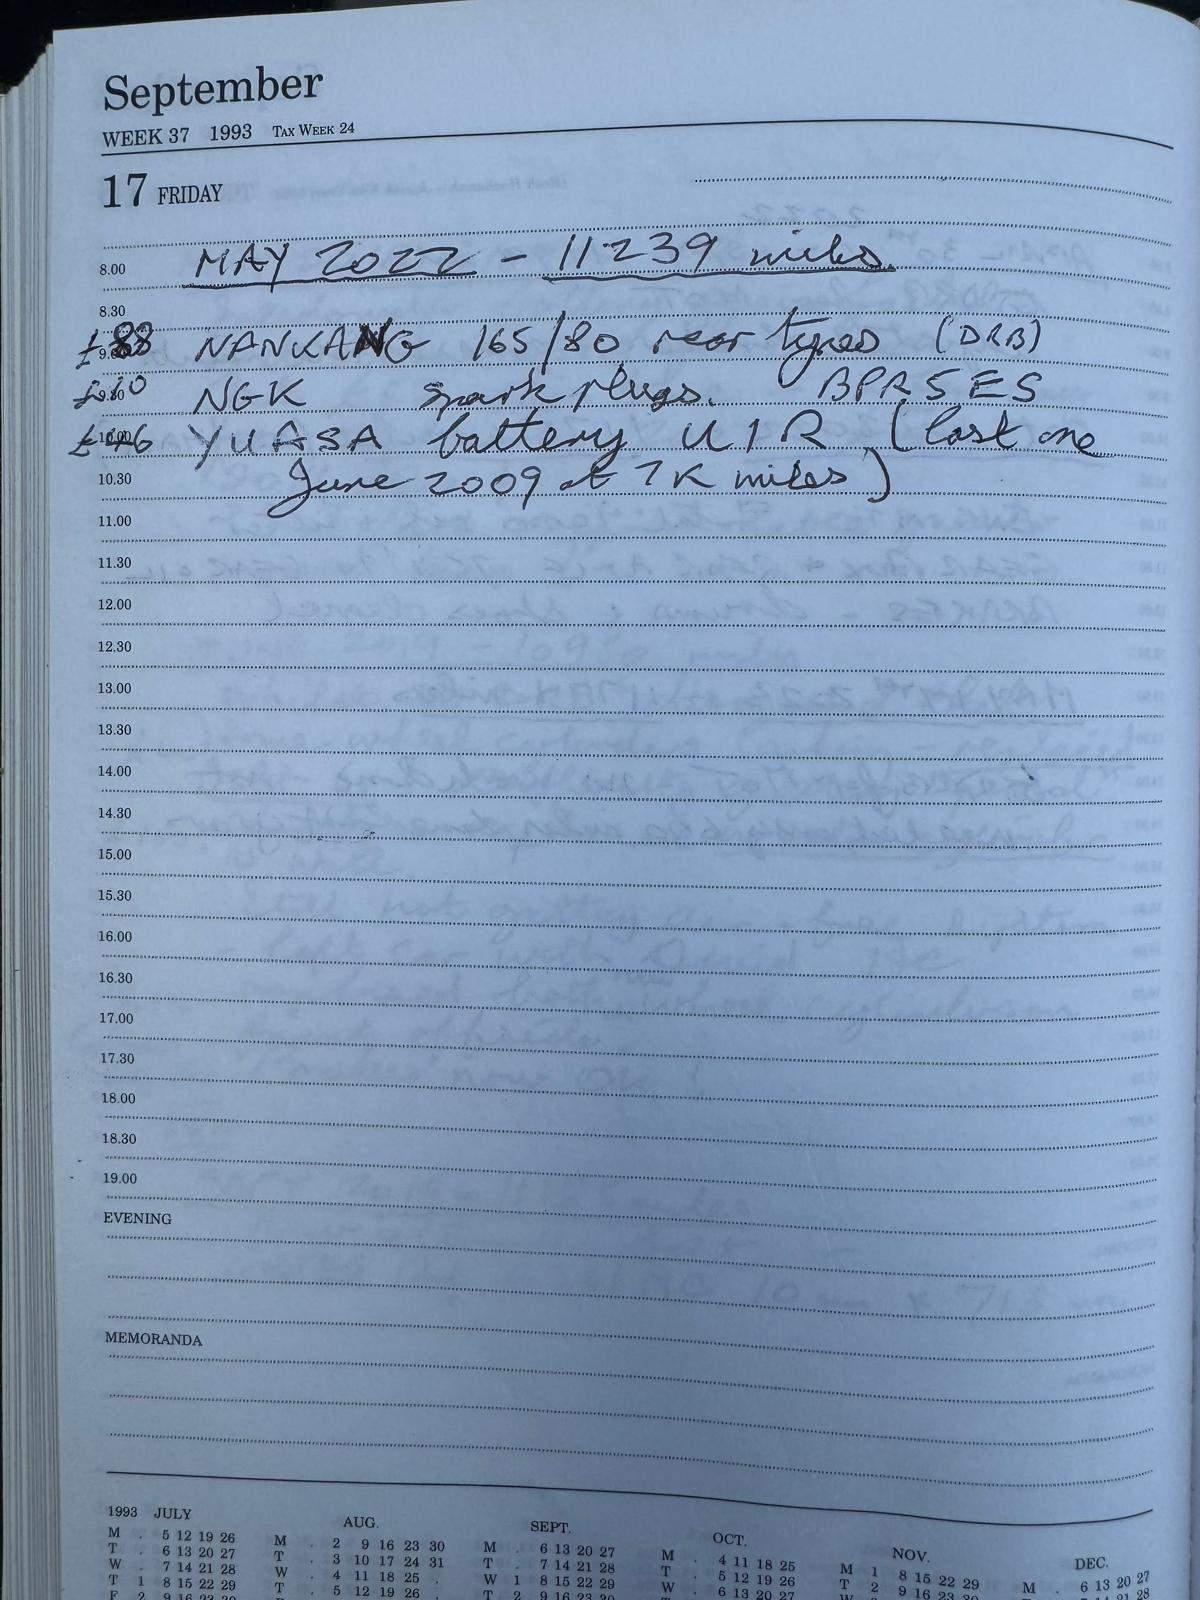 September
WEEK 37 1993 TAX WEEK 24
17 FRIDAY
8.00 MAY 2022 - 11239 miles
8.30
£88 NANKANG 165/80 rear tyres (DRB)
£10 9.30 NGK spark plugs. BPR5ES
£46 YUASA battery U1R (last one
10.30 June 2009 at 7K miles)
11.00
11.30
12.00
12.30
13.00
13.30
14.00
14.30
15.00
15.30
16.00
16.30
17.00
17.30
18.00
18.30
19.00
EVENING
MEMORANDA
1993 JULY AUG. SEPT. OCT. NOV. DEC.
M . 5 12 19 26 M . 2 9 16 23 30 M . 6 13 20 27 M . 4 11 18 25 M 1 8 15 22 29 M . 6 13 20 27
T . 6 13 20 27 T . 3 10 17 24 31 T . 7 14 21 28 T . 5 12 19 26 T 2 9 16 23 30
W . 7 14 21 28 W . 4 11 18 25 . W 1 8 15 22 29 W . 6 13 20 27
T 1 8 15 22 29 T . 5 12 19 26